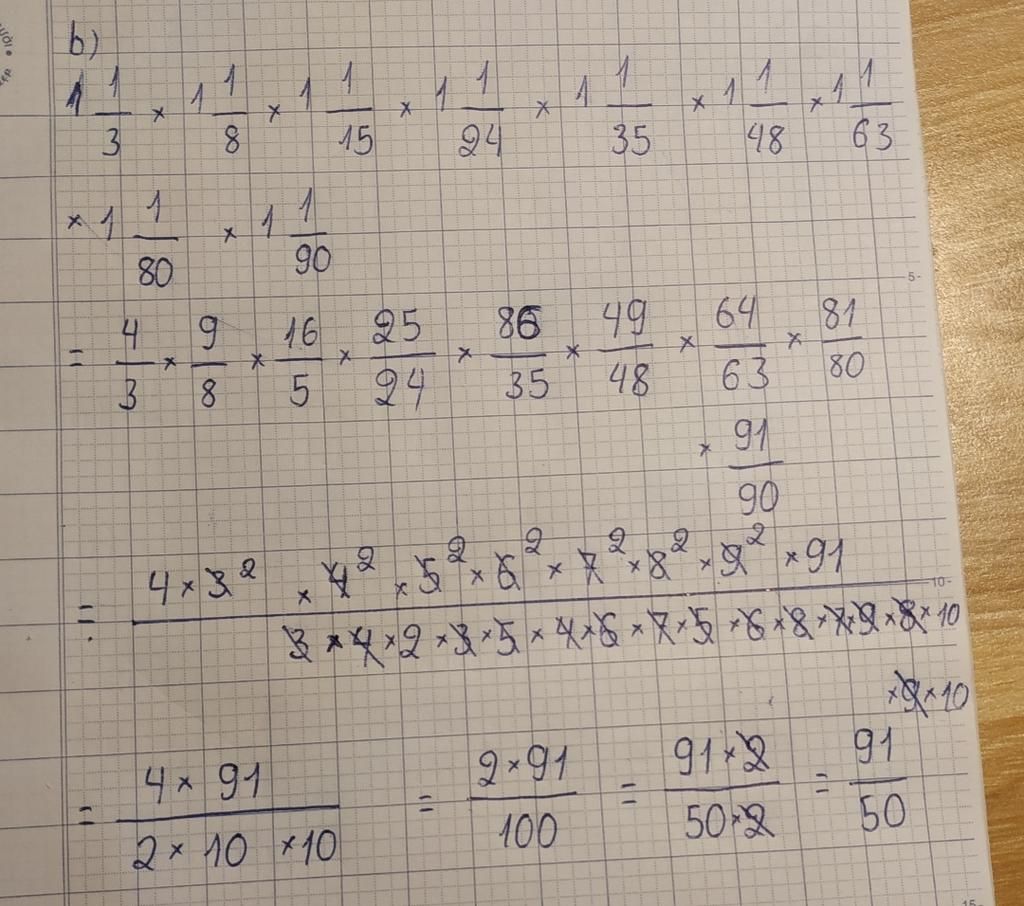 b)
1 1/3 × 1 1/8 × 1 1/15 × 1 1/24 × 1 1/35 × 1 1/48 × 1 1/63
× 1 1/80 × 1 1/90
= 4/3 × 9/8 × 16/5 × 25/24 × 36/35 × 49/48 × 64/63 × 81/80
× 91/90
= (4 × 3² × 4² × 5² × 6² × 7² × 8² × 9² × 91)/(3 × 4 × 2 × 3 × 5 × 4 × 6 × 7 × 5 × 6 × 8 × 7 × 9 × 8 × 10
× 9 × 10)
= (4 × 91)/(2 × 10 × 10) = (2 × 91)/100 = (91 × 2)/(50 × 2) = 91/50
5
10
15